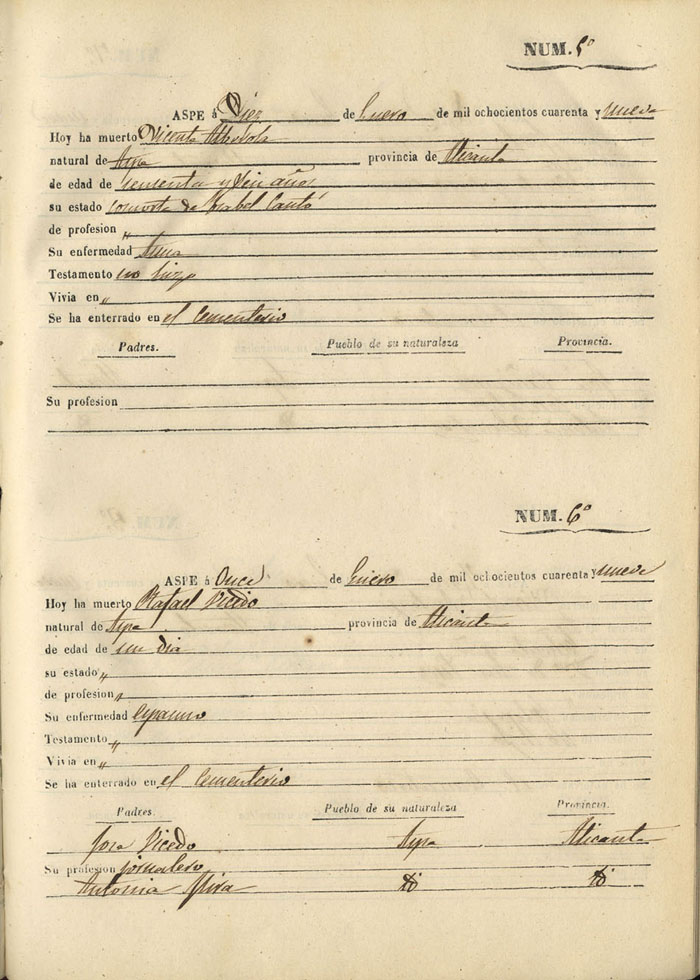 NUM. 5º
ASPE á Diez de Enero de mil ochocientos cuarenta y nueve
Hoy ha muerto Vicente Alberola
natural de Aspe provincia de Alicante
de edad de sesenta y seis años
su estado consorte de Isabel Cantó
de profesion "
Su enfermedad
Testamento no hizo
Vivia en "
Se ha enterrado en el Cementerio
Padres. Pueblo de su naturaleza Provincia.
Su profesion
NUM. 6º
ASPE á Once de Enero de mil ochocientos cuarenta y nueve
Hoy ha muerto Rafael Vicedo
natural de Aspe provincia de Alicante
de edad de un dia
su estado "
de profesion "
Su enfermedad espasmo
Testamento "
Vivia en "
Se ha enterrado en el Cementerio
Padres. Pueblo de su naturaleza Provincia.
Jose Vicedo Aspe Alicante
Su profesion jornalero
Antonia id id